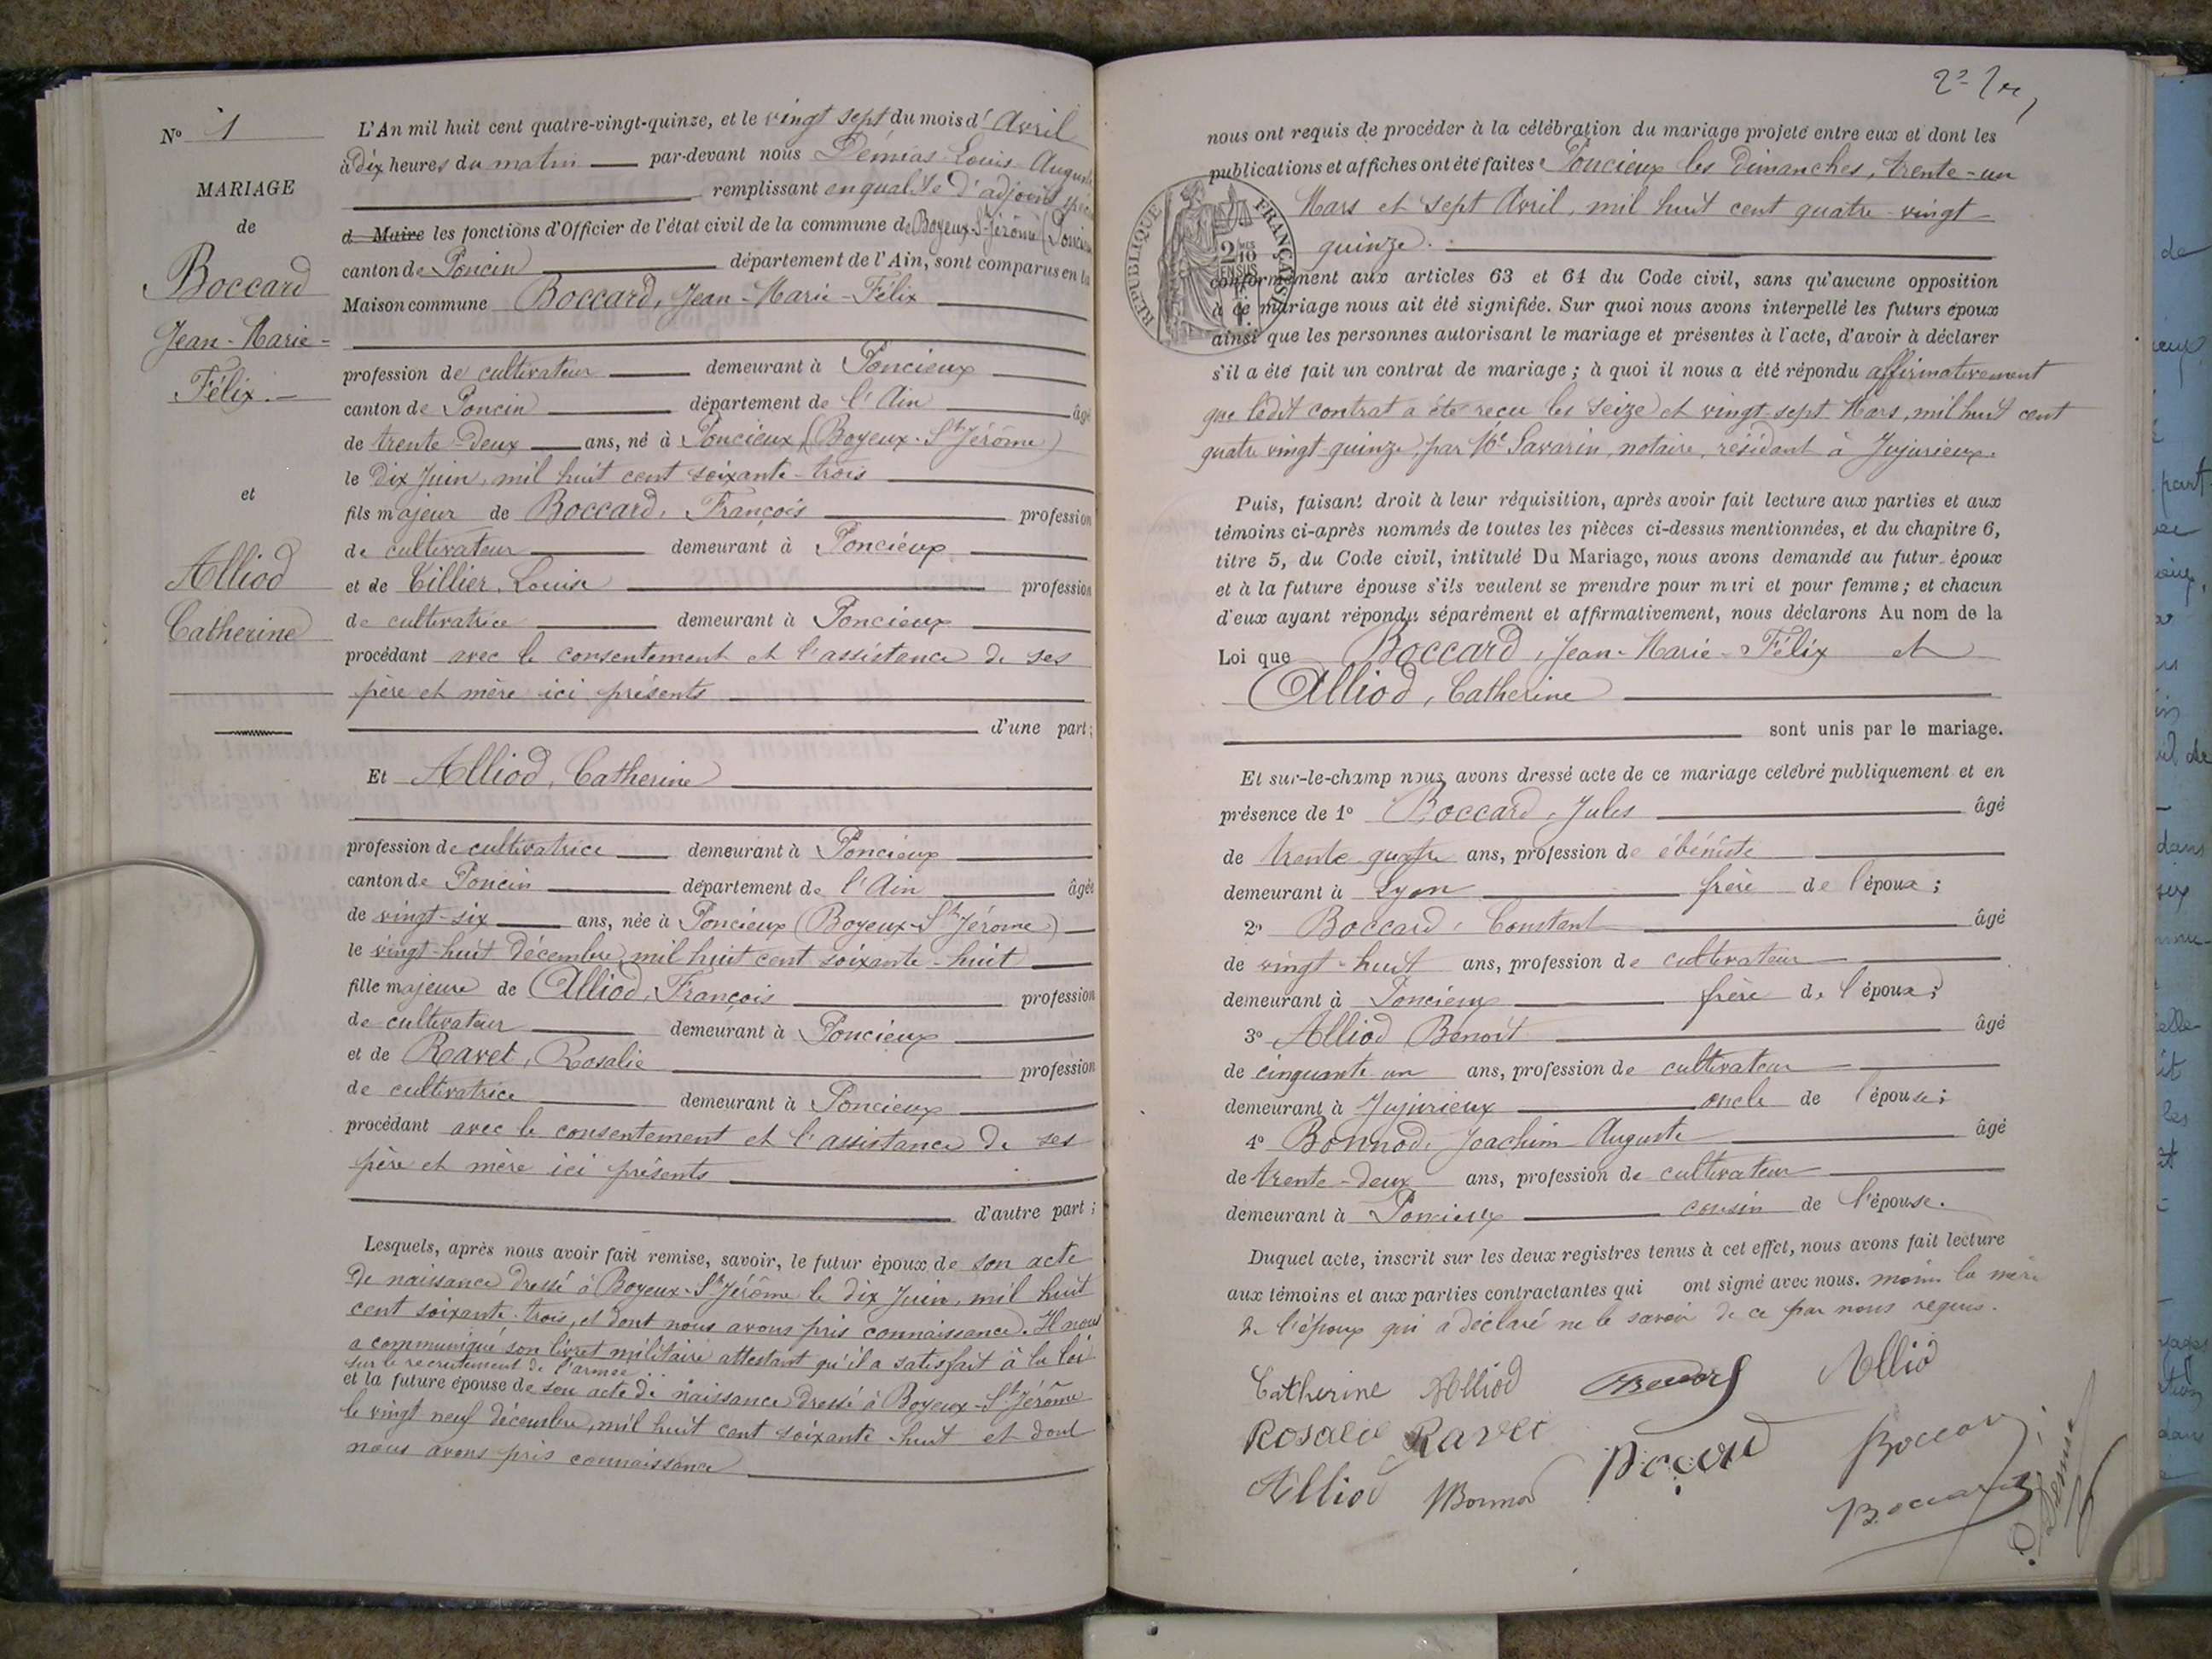 N° 1
MARIAGE
de
Boccard
Jean-Marie-
Félix.
et
Alliod
Catherine
L'An mil huit cent quatre-vingt-quinze, et le vingt sept du mois d' Avril
à dix heures du matin par-devant nous Démias Louis Auguste
remplissant en qualité d'adjoint spécial
d Maire les fonctions d'Officier de l'état civil de la commune de Boyeux-St-Jérôme (Poncieux
canton de Poncin département de l'Ain, sont comparus en la
Maison commune Boccard, Jean-Marie-Félix
profession de cultivateur demeurant à Poncieux
canton de Poncin département de l'Ain âgé
de trente-deux ans, né à Poncieux (Boyeux-St Jérôme)
le dix Juin, mil huit cent soixante-trois
fils majeur de Boccard, François profession
de cultivateur demeurant à Poncieux
et de Tillier, Louise profession
de cultivatrice demeurant à Poncieux
procédant avec le consentement et l'assistance de ses
père et mère ici présents
d'une part;
Et Alliod, Catherine
profession de cultivatrice demeurant à Poncieux
canton de Poncin département de l'Ain âgée
de vingt-six ans, née à Poncieux (Boyeux-St Jérome)
le vingt-huit décembre, mil huit cent soixante-huit
fille majeure de Alliod, François profession
de cultivateur demeurant à Poncieux
et de Ravet, Rosalie profession
de cultivatrice demeurant à Poncieux
procédant avec le consentement et l'assistance de ses
père et mère ici présents
d'autre part;
Lesquels, après nous avoir fait remise, savoir, le futur époux de son acte
de naissance dressé à Boyeux-St Jérôme le dix Juin, mil huit
cent soixante-trois, et dont nous avons pris connaissance. Il nous
a communiqué son livret militaire attestant qu'il a satisfait à la loi
sur le recrutement de l'armée.
et la future épouse de son acte de naissance dressé à Boyeux-St Jérôme
le vingt neuf décembre, mil huit cent soixante-huit et dont
nous avons pris connaissance
nous ont requis de procéder à la célébration du mariage projeté entre eux et dont les
publications et affiches ont été faites à Poncieux les Dimanches, trente-un
Mars et sept Avril, mil huit cent quatre-vingt-
quinze.
RÉPUBLIQUE FRANÇAISE
2/10 EN SUS
conformément aux articles 63 et 64 du Code civil, sans qu'aucune opposition
à ce mariage nous ait été signifiée. Sur quoi nous avons interpellé les futurs époux
ainsi que les personnes autorisant le mariage et présentes à l'acte, d'avoir à déclarer
s'il a été fait un contrat de mariage; à quoi il nous a été répondu affirmativement
que ledit contrat a été reçu les seize et vingt-sept Mars, mil huit cent
quatre vingt-quinze, par Me Savarin, notaire, résidant à Jujurieux.
Puis, faisant droit à leur réquisition, après avoir fait lecture aux parties et aux
témoins ci-après nommés de toutes les pièces ci-dessus mentionnées, et du chapitre 6,
titre 5, du Code civil, intitulé Du Mariage, nous avons demandé au futur époux
et à la future épouse s'ils veulent se prendre pour mari et pour femme; et chacun
d'eux ayant répondu séparément et affirmativement, nous déclarons Au nom de la
Loi que Boccard, Jean-Marie-Félix et
Alliod, Catherine
sont unis par le mariage.
Et sur-le-champ nous avons dressé acte de ce mariage célébré publiquement et en
présence de 1° Boccard, Jules âgé
de trente-quatre ans, profession de ébéniste
demeurant à Lyon frère de l'époux;
2° Boccard, Constant âgé
de vingt-huit ans, profession de cultivateur
demeurant à Poncieux frère de l'époux;
3° Alliod Benoît âgé
de cinquante un ans, profession de cultivateur
demeurant à Jujurieux oncle de l'épouse;
4° Bonnod, Joachim Auguste âgé
de trente-deux ans, profession de cultivateur
demeurant à Poncieux cousin de l'épouse.
Duquel acte, inscrit sur les deux registres tenus à cet effet, nous avons fait lecture
aux témoins et aux parties contractantes qui ont signé avec nous. moins la mère
de l'époux qui a déclaré ne le savoir de ce par nous requis.
Catherine Alliod Boccard Alliod
Rosalie Ravet Boccard Boccard
Alliod Bonnod Boccard